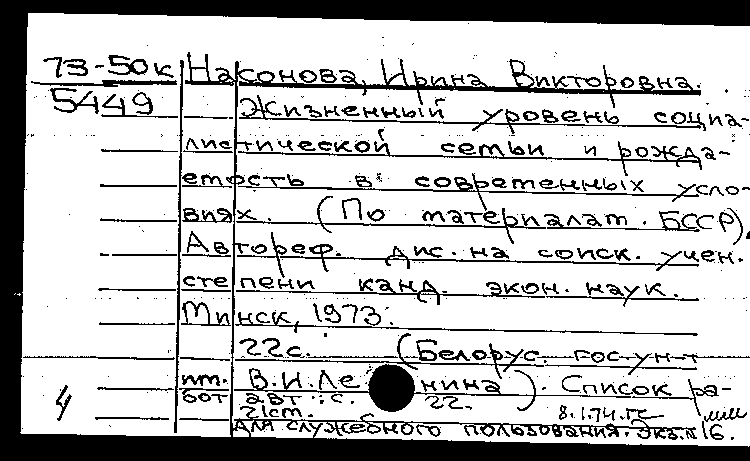 73-50к Насонова, Ирина Викторовна.
5449 Жизненный уровень социа-
листической семьи и рожда-
емость в современных усло-
виях. (По материалам БССР).
Автореф. дис. на соиск. учен.
степени канд. экон. наук.
Минск, 1973.
22с. (Белорус. гос. ун-т
им. В.И.Ленина). Список ра-
бот авт.: с. 22.
4 21см. 8.1.74.гс
Для служебного пользования. Экз.N 16.